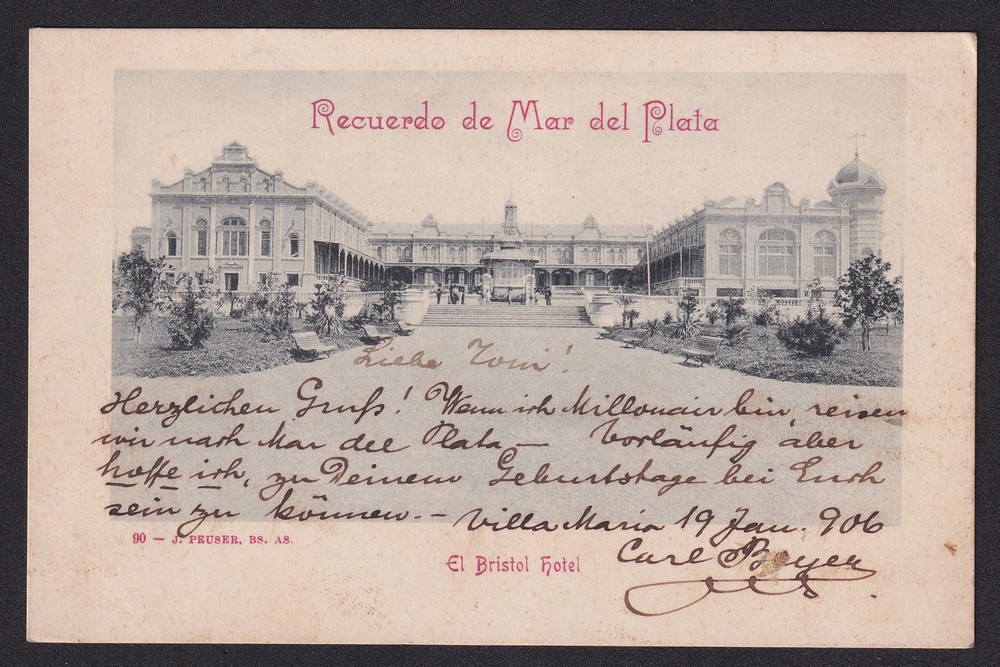 Recuerdo de Mar del Plata
Liebe Toni!
Herzlichen Gruß! Wenn ich Millonair bin, reisen
wir nach Mar del Plata — Vorläufig aber
hoffe ich, zu Deinem Geburtstage bei Euch
sein zu können. – Villa Maria 19 Jan. 906
Carl Beyer
90 — J. PEUSER, BS. AS.
El Bristol Hotel